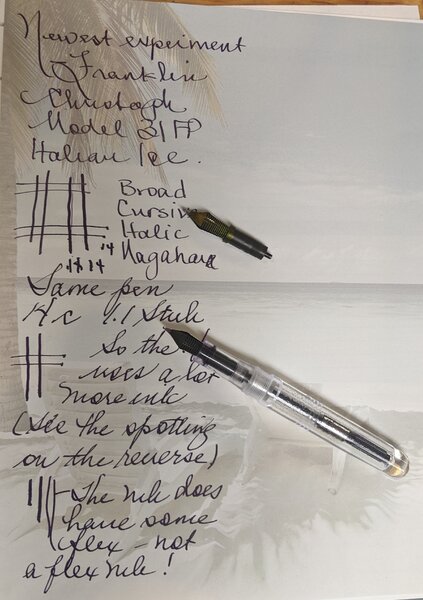 Newest experiment
Franklin
Christoph
Model 31 FP
Italian Ice.
Broad
Cursiv
Italic
14 Nagahara
14 14
Same pen
H c 1.1 Stub
So the
uses a lot
more ink
(see the spotting
on the reverse)
The nib does
have some
flex - not
a flex nib!